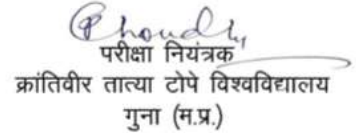 परीक्षा नियंत्रक
क्रांतिवीर तात्या टोपे विश्वविद्यालय
गुना (म.प्र.)